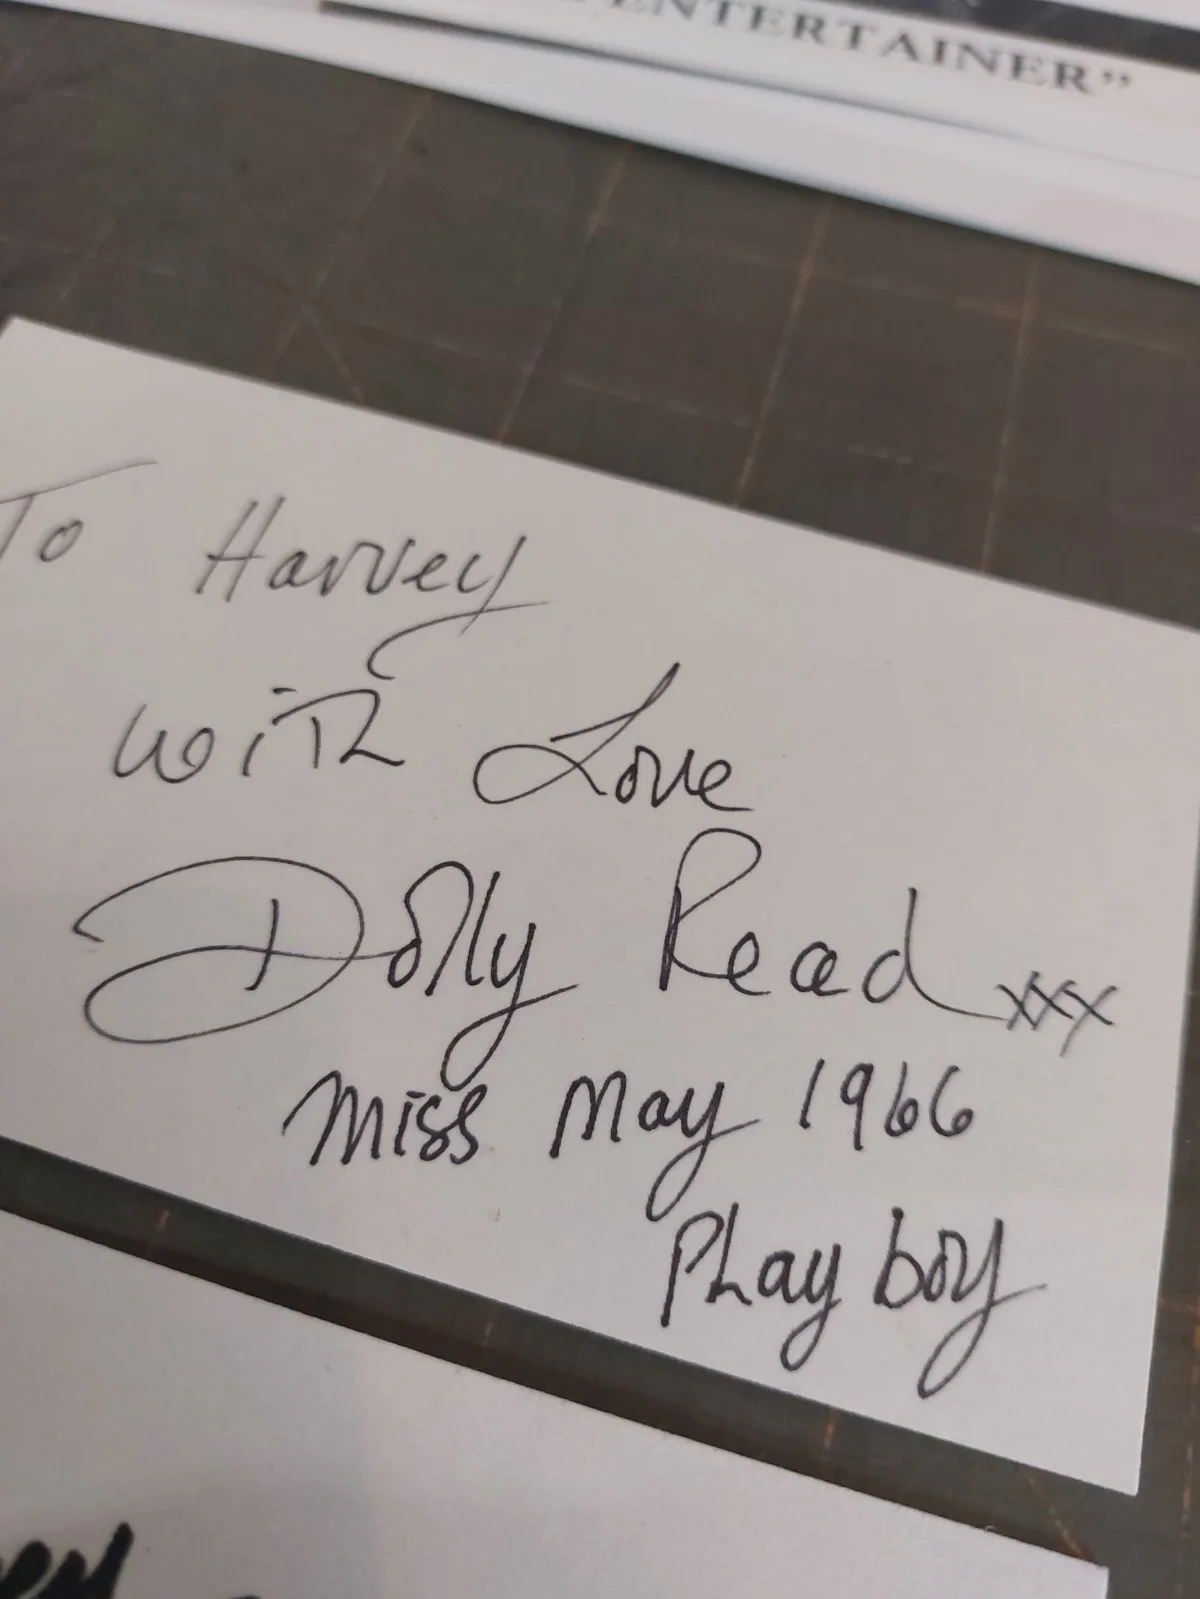 ENTERTAINER”
To Harvey
with Love
Dolly Read xxx
Miss May 1966
Playboy